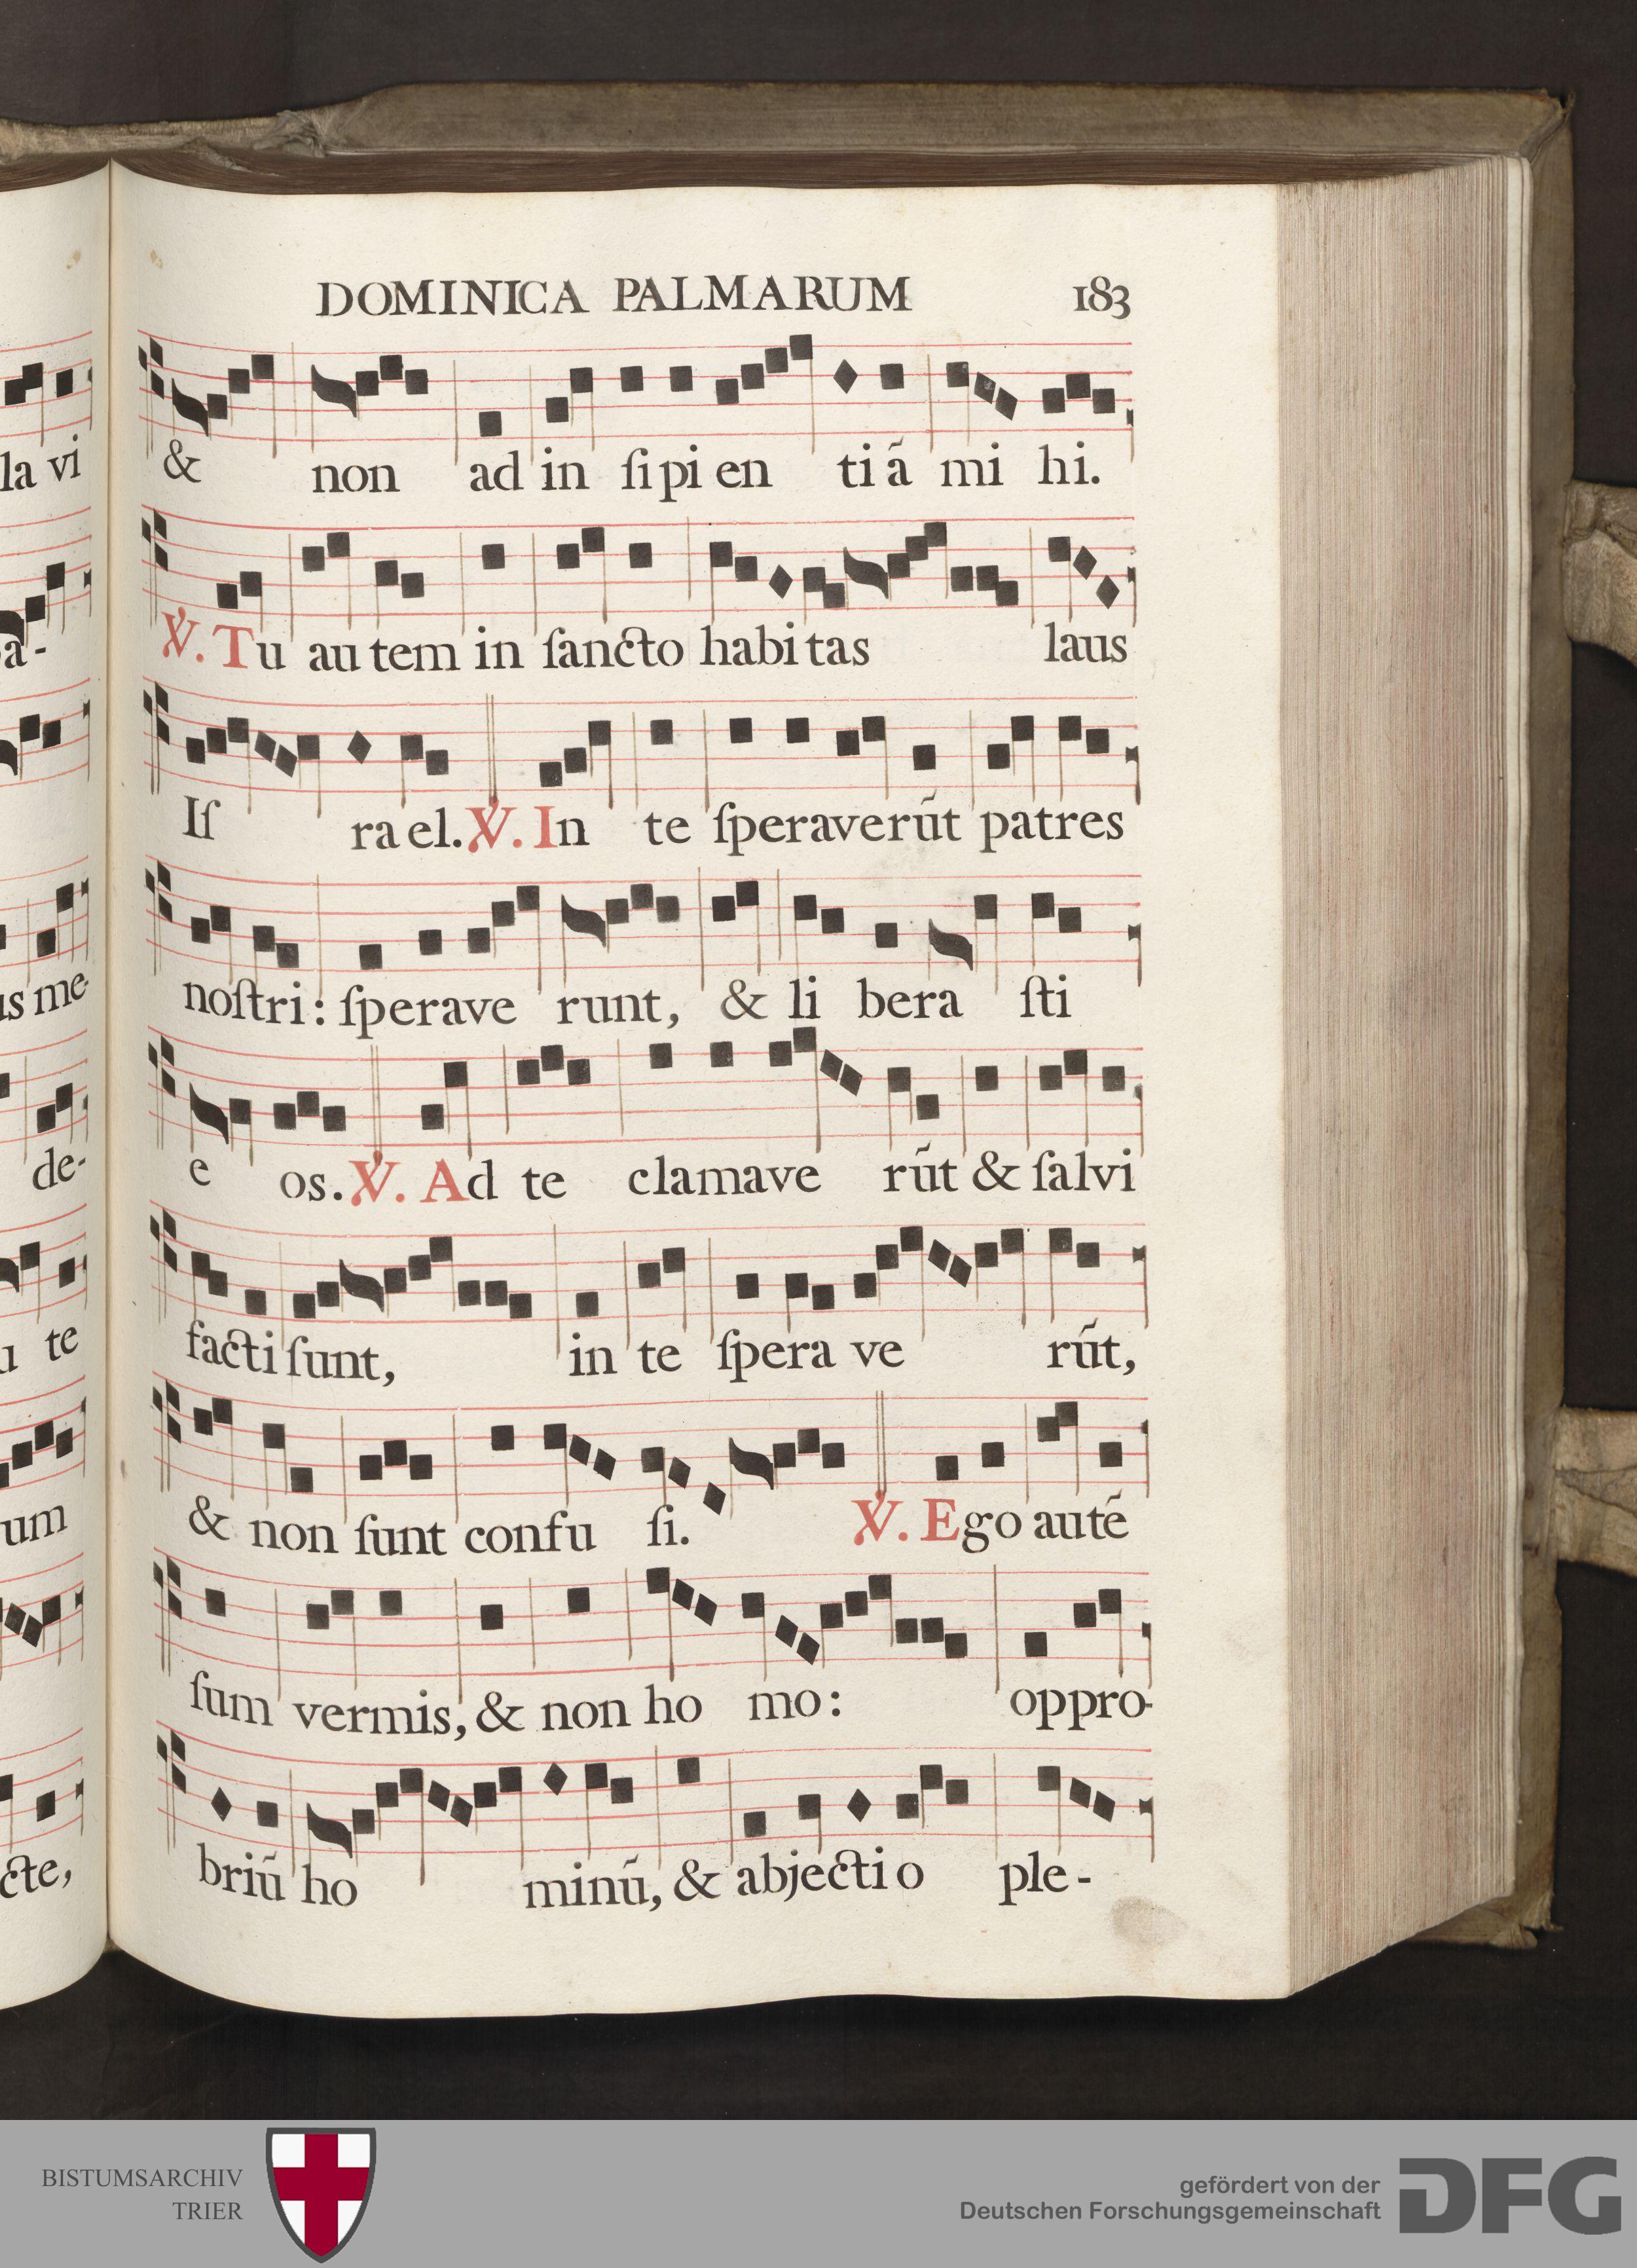 DOMINICA PALMARUM 183
la vi
& non ad in ſi pi en ti ã mi hi.
a-
℣. Tu au tem in ſancto habi tas laus
Iſ ra el. ℣. In te ſperaverũt patres
us me-
noſtri: ſperave runt, & li bera ſti
de-
e os. ℣. Ad te clamave rũt & ſalvi
te
facti ſunt, in te ſpera ve rũt,
um
& non ſunt confu ſi. ℣. Ego autẽ
ſum vermis, & non ho mo: oppro-
cte,
briũ ho minũ, & abjecti o ple-
BISTUMSARCHIV
TRIER
gefördert von der
Deutschen Forschungsgemeinschaft
DFG